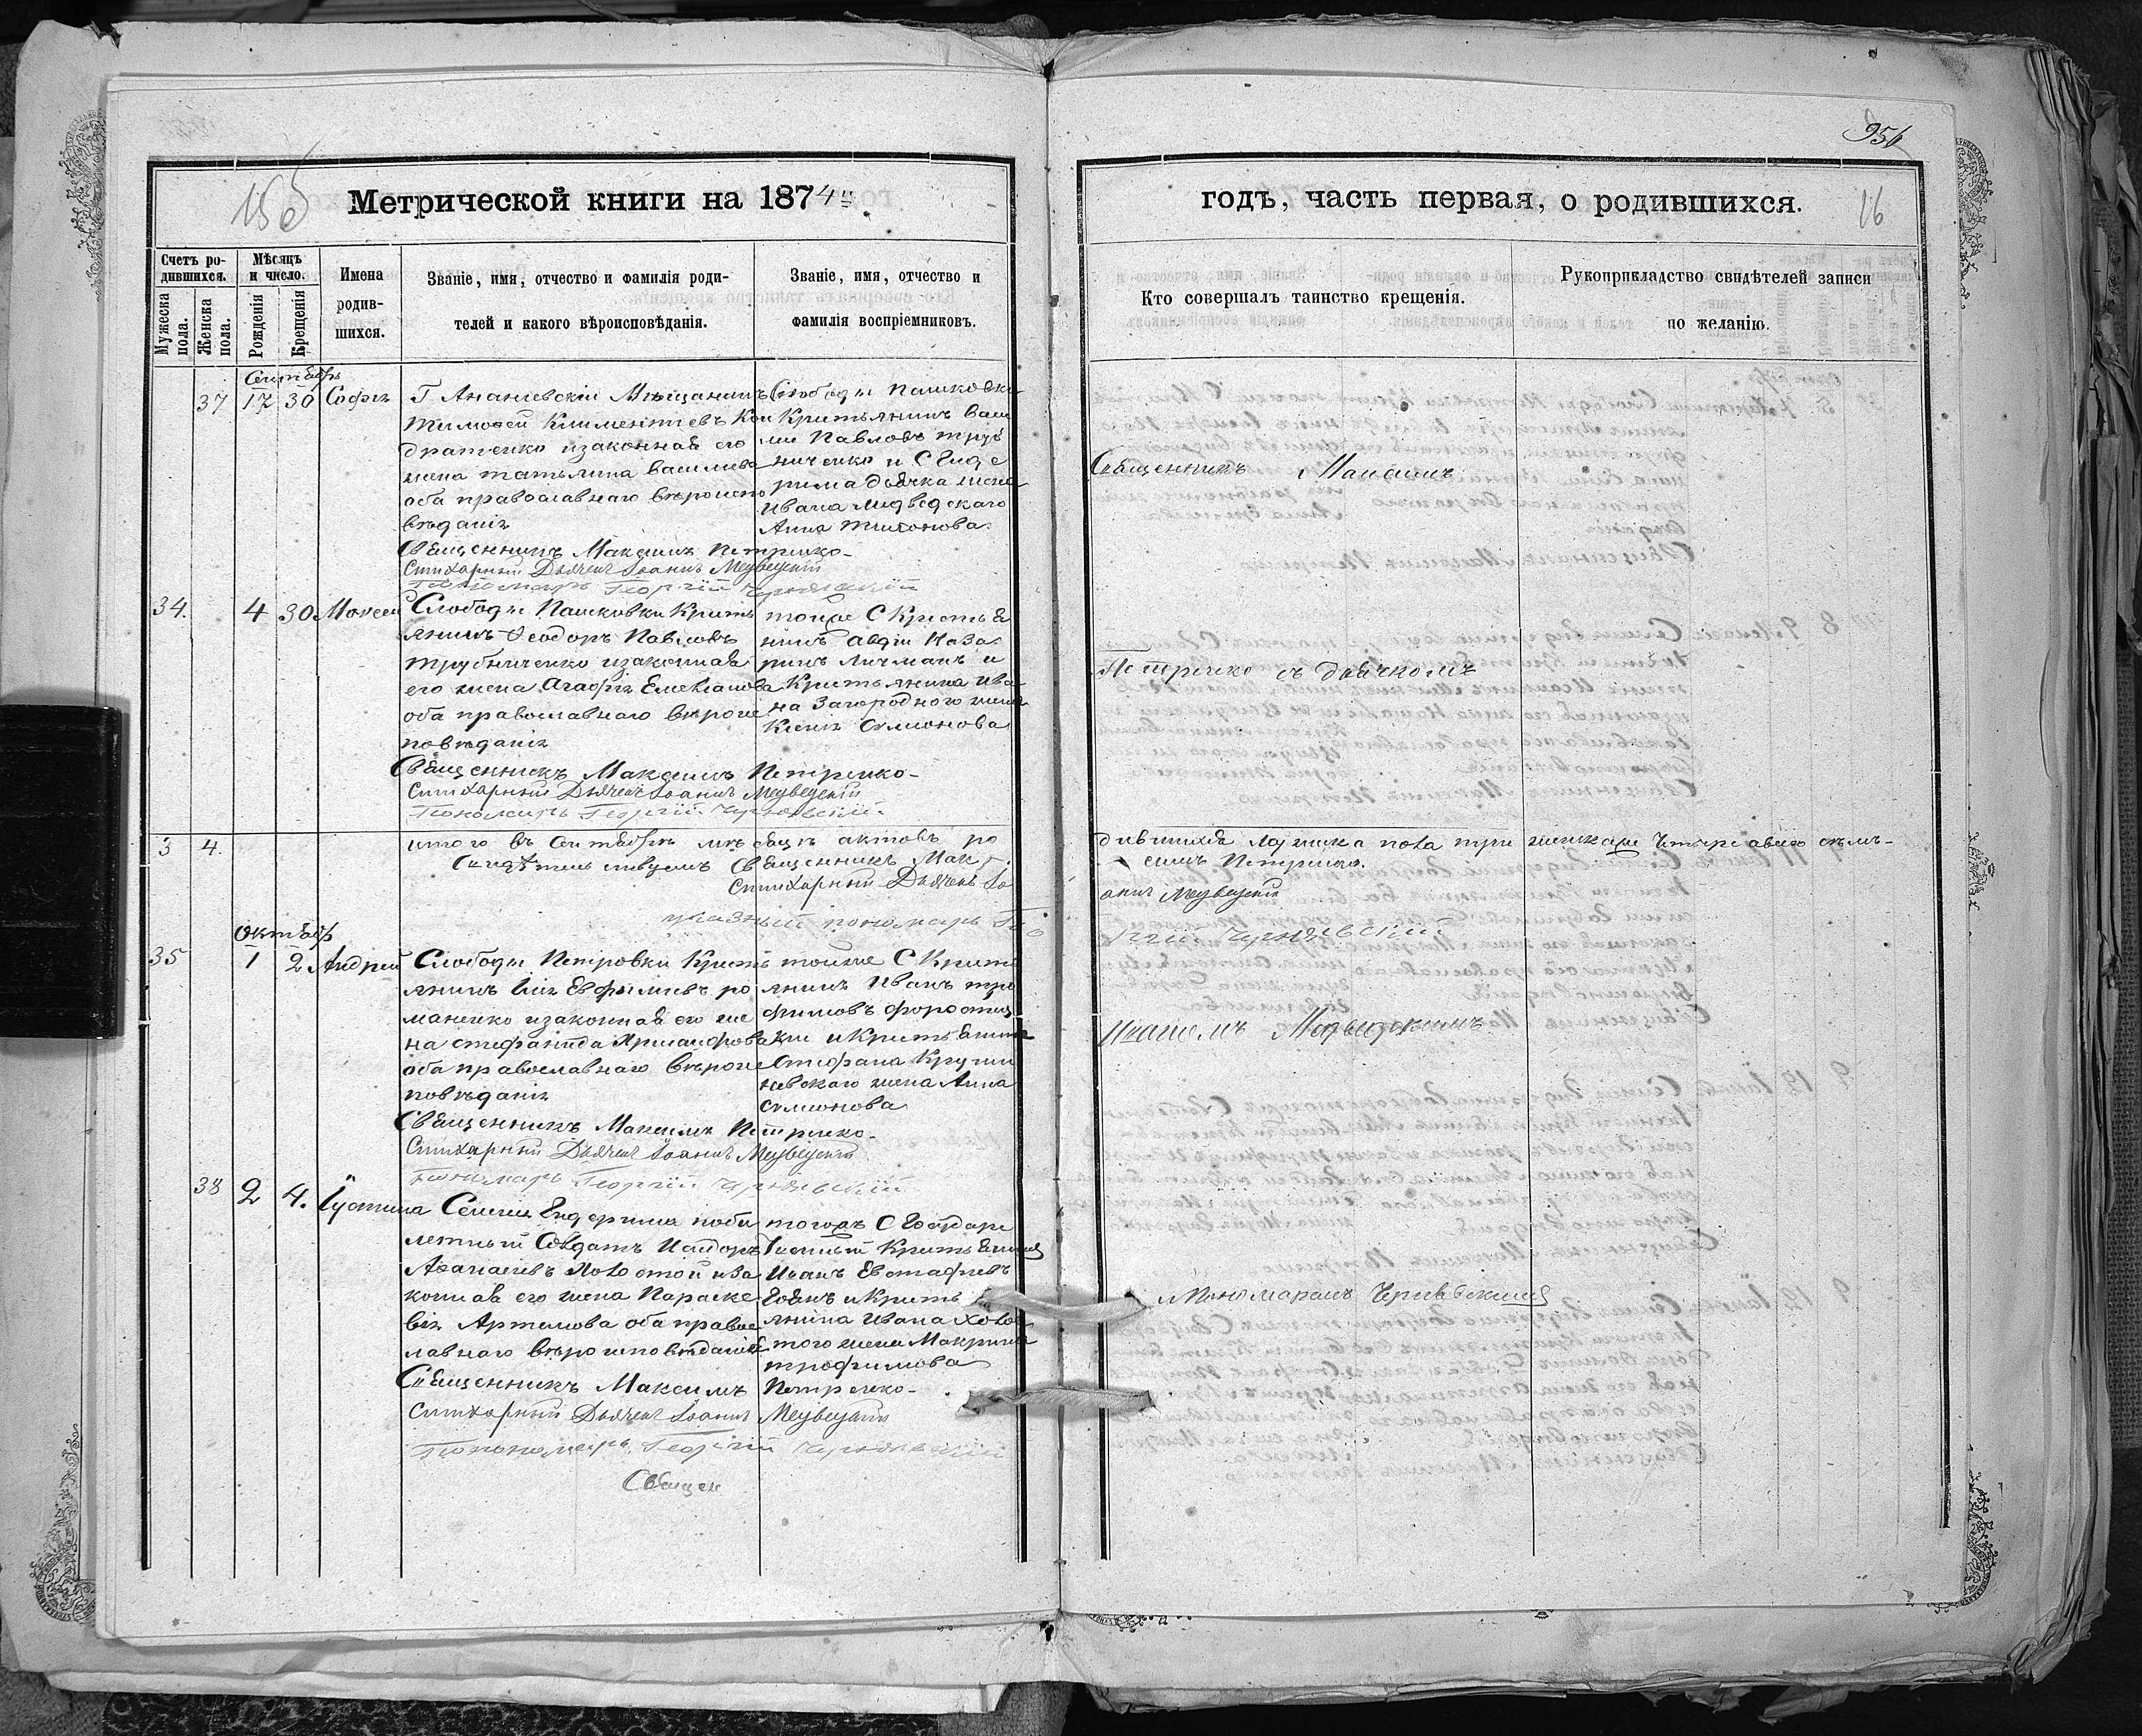 956
156
Метрической книги на 1874й
годъ, часть первая, о родившихся.
16
Счетъ ро-
дившихся.
Мужеска
пола.
Женска
пола.
Мѣсяцъ
и число.
Рожденія
Крещенія
Имена
родив-
шихся.
Званіе, имя, отчество и фамилія роди-
телей и какого вѣроисповѣданія.
Званіе, имя, отчество и
фамилія воспріемниковъ.
Кто совершалъ таинство крещенія.
Рукоприкладство свидѣтелей записи
по желанію.
Сентябрь
37 17 30 Софія
Г Ананіевскій Мѣщанинъ
Тимофей Климентіевъ Кон
дратенко изаконная его
жена татьяна василиева
оба православнаго вѣроиспо
вѣданія
Слободы Пашковки
Критьянинъ васи
лій Павловъ труб
ниченко и С Енде
рима дьячка жена
Ивана Медведскаго
Анна тихонова.
Священникъ Максимъ Петренко-
Стихарный Дьячекъ Іоаннъ Медведскій
Пономарь Георгій Чернявскій
Священникъ Максимъ
34. 4 30 Моисей
Слободы Пашковки Крить
янинъ Ѳеодоръ Павловъ
трубниченко изаконная
его жена Агафія Емелианова
оба православнаго вѣроис
повѣданія
тойже С Кристья
нинъ авдій Наза
ривъ Личманъ и
Критьянина ива
на Загороднаго жена
Ксенія Симионова
Священникъ Максимъ Петренко-
Стихарный Дьячекъ Іоаннъ Медведскій
Пономарь Георгій Чернявскій
Петренко съ дьячкомъ
3 4.
итого въ сентябрѣ мѣсяцѣ актовъ ро
дившихся мужска пола три женска четыре
Священникъ Мак
симъ Петренко.
Стихарный Дьячекъ Іо
аннъ Медведскій
указный пономарь Гео
ргій Чернявскій
Октябрь
35 1 2 Андрей
Слободы Петровки Крить
янинъ Илія Евфимивъ ро
маненко изаконная его же
на стефанида
оба православнаго вѣроис
повѣданія
тойже С Крить
янинъ Иванъ тро
фимовъ
и Критьянина
Стефана
жена Анна
Симионова
Священникъ Максимъ Петренко-
Стихарный Дьячекъ Іоаннъ Медведскій
Пономарь Георгій Чернявскій
Иваномъ Медведскимъ
38 2 4. Іустина
Селенія Ендерима
Солдатъ Исидоръ
Афанасіевъ Холостой иза
конная его жена Параске
вія Артемова оба право
славнаго вѣроисповѣданія
тогожъ С Государс
твенный Критьянинъ
Иванъ Евстафіевъ
и Крить
янина Ивана Холос
того жена Макрина
трофимова
Священникъ Максимъ Петренко-
Стихарный Дьячекъ Іоаннъ Медведскій
Пономарь Георгій Чернявскій
и Пономаремъ Чернявскимъ
Священ